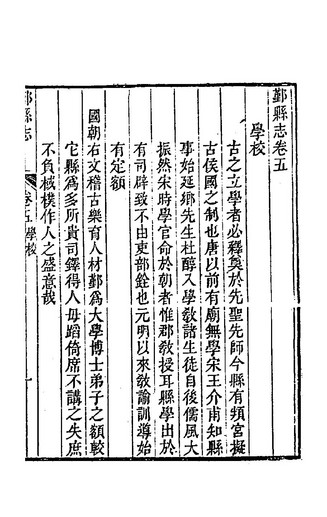 鄞縣志卷五
學校
古之立學者必釋奠於先聖先師今縣有頖宮擬
古侯國之制也唐以前有廟無學宋王介甫知縣
事始延鄉先生杜醇入學敎諸生徒自後儒風大
振然宋時學官命於朝者惟郡敎授耳縣學出於
有司辟致不由吏部銓也元明以來敎諭訓導始
有定額
國朝右文稽古樂育人材鄞爲大學博士弟子之額較
它縣爲多所貴司鐸得人毋蹈倚席不講之失庶
不負棫樸作人之盛意哉
鄞縣志
卷五 學校
一